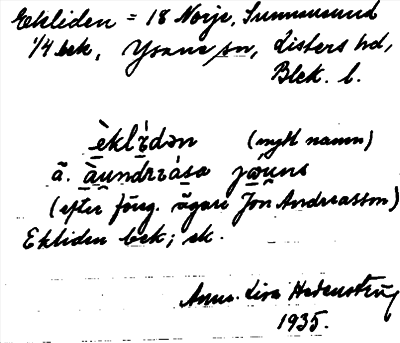 Ekliden = 18 Norje, Sunnansund
1/4 bek, Ysane sn, Listers hd,
Blek. l.
èklı̀dən (nytt namn)
ā. àundrıása jǿuns
(efter föreg. ägare Jön Andreasson)
Ekliden bek; ek.
Anna-Lisa Hedenström
1935.